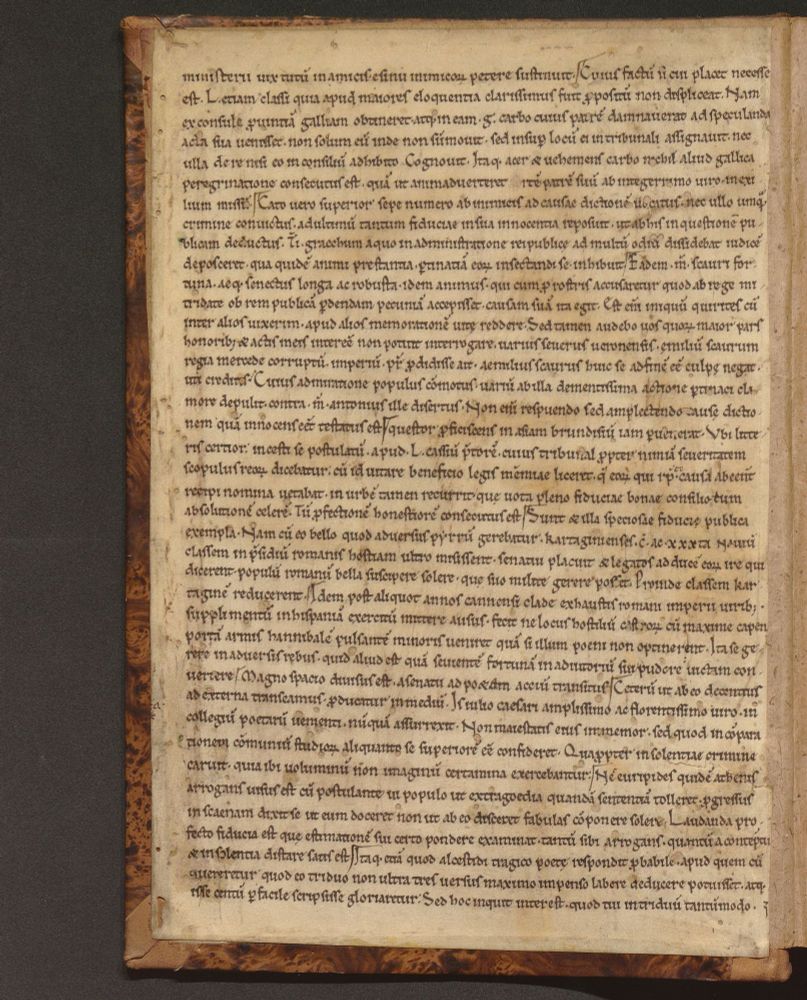 ministerii uix tutũ in amicis· e sinu inimicoꝝ petere sustinuit· Cuius factũ ñ cui placet necesse
est· L· etiam classi quia apud maiores eloquentia clarissimus fuit ꝓpositũ non displiceat· Nam
ex consule ꝓuintiã galliam obtineret· atq; in eam· g· carbo cuius patrẽ damnauerat ad speculanda
acta sua uenisset· non solum eũ inde non sũmouit· sed insup̱ locũ ei in tribunali assignauit· nec
ulla de re nisi eo in consiliũ adhibito Cognouit· Itaq· acer & uehemens carbo nichil aliud gallica
peregrinatione consecutus est· quã ut animaduerteret patrẽ suũ ab integerrimo uiro· in exi
lium missũ· Cato uero superior sepe numero ab inimicis ad causae dictionẽ uocatus· nec ullo umq̃
crimine conuictus· ad ultimũ tantum fiduciae in sua innocentia reposuit· ut ab his in questionẽ pu
blicam deductus· Ti· gracchum a quo in administratione rei publice ad multũ odiũ dissidebat iudicẽ
deposceret· qua quidẽ animi prestantia· ꝑtinatiã eoꝝ insectandi se· inhibuit Eadem· m̃· scauri for
tuna· aeq· senectus longa ac robusta· idem animus· qui cum ꝓ rostris accusaretur quod ab rege mi
tridate ob rem publicã ꝓdendam pecuniã accepisset· causam suã ita egit· Est eñi iniquũ quirites cũ
inter alios uixerim· apud alios memorationẽ uite reddere· Sed tamen audebo uos quoꝝ maior pars
honorib; & actis meis interẽẽ non potuit interrogare· uarius seuerus ueronensis· emiliũ scaurum
regia mercede corruptũ· imperiũ· pr̃· ꝓdidisse ait· aemilius scaurus huic se adfinẽ ẽẽ culpe negat·
utri creditis· Cuius admiratione populus cõmotus· uariũ ab illa dementissima actione ꝑtinaci cla
more depulit· contra· m̃· antonius ille disertus· Non eñi respuendo sed amplectendo causae dictio
nem quã innocens ẽẽt testatus est questor ꝓficiscens in asiam brundisiũ iam puenerat· Vbi litte
ris certior· incesti se postulatũ· apud· L· cassiũ p̃torẽ· cuius tribunal ꝓpter nimiã seueritatem
scopulus reoꝝ dicebatur· cũ id uitare beneficio legis mẽmiae liceret· q̃ eoꝝ qui rp̃· causã abeent
recipi nomina uetabat· in urbẽ tamen recurrit· que uota pleno fiduciae bonae consilio tum
absolutionẽ celerẽ· Tũ ꝓfectionẽ honestiorẽ consecutus est Sunt & illa speciosae fiducie publica
exempla· Nam cũ eo bello quod aduersus pyrrũ gerebatur· kartaginienses· c̃· ac· xxxta nauiũ
classem in p̃sidiũ romanis hostiam ultro misissent· senatui placuit & legatos ad ducẽ eoꝝ ire qui
dicerent· populũ romanũ bella suscipere solere· que suo milite gerere posset· Proinde classem kar
taginẽ reducerent· Idem post aliquot annos cannensi clade exhaustis romani imperii uirib;
supplimentũ in hispaniã exercitũ mittere ausus· fecit ne locus hostiliũ castroꝝ cũ maxime capen
portã armis hannibalẽ pulsantẽ minoris ueniret quã si illum poeni non optinerent· Ita se ge
rere in aduersis rebus· quid aliud est quã seuientẽ fortunã in adiutoriũ sui pudore uictam con
uertere Magno spacio diuisus est· a senatu ad poetam accii transitus Ceterũ ut ab eo decentius
ad externa transeamus· ꝓducatur in mediũ· Is iulio caesari amplissimo ac florentissimo uiro· in
collegiũ poetarũ uenienti· nũquã assurrexit· Non maiestatis eius inmemor· sed quod in cõpara
tionem cõmuniũ studioꝝ aliquanto se superiorẽ ẽẽ confideret· Quapropter insolentiae crimine
caruit· quia ibi uoluminũ non imaginũ certamina exercebantur· Nẽ euripides quidẽ athenis
arrogans uisus est cũ postulante in populo ut ex tragoedia quandã sententiã tolleret· ꝓgressus
in scaenam dixit se ut eum doceret non ut ab eo disceret fabulas cõponere solere· Laudanda pro
fecto fiducia est que estimationẽ sui certo pondere examinat· tantũ sibi arrogans· quantũ a contẽptu
& insolentia distare satis est Itaq· etiã quod alcestidi tragico poete respondit ꝓbabile· apud quem cũ
quereretur quod eo triduo non ultra tres uersus maximo impenso labore deducere potuisset· atq·
isse centũ ꝑfacile scripsisse gloriaretur· Sed hoc inquit interest· quod tui in triduũ tantũmodo·